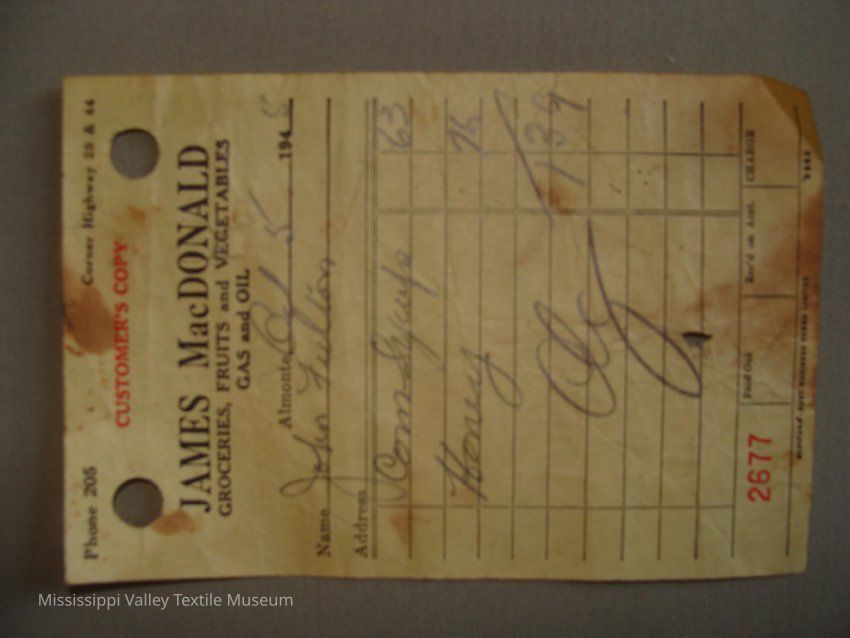 Phone 205 Corner Highway 29 & 44
CUSTOMER'S COPY
JAMES MacDONALD
GROCERIES, FRUITS and VEGETABLES
GAS and OIL
Almonte 5 194
Name John Fulton
Address
Corn Syrup 63
Honey
139
2677 Paid Out Rec'd on Acct. CHARGE
Mississippi Valley Textile Museum